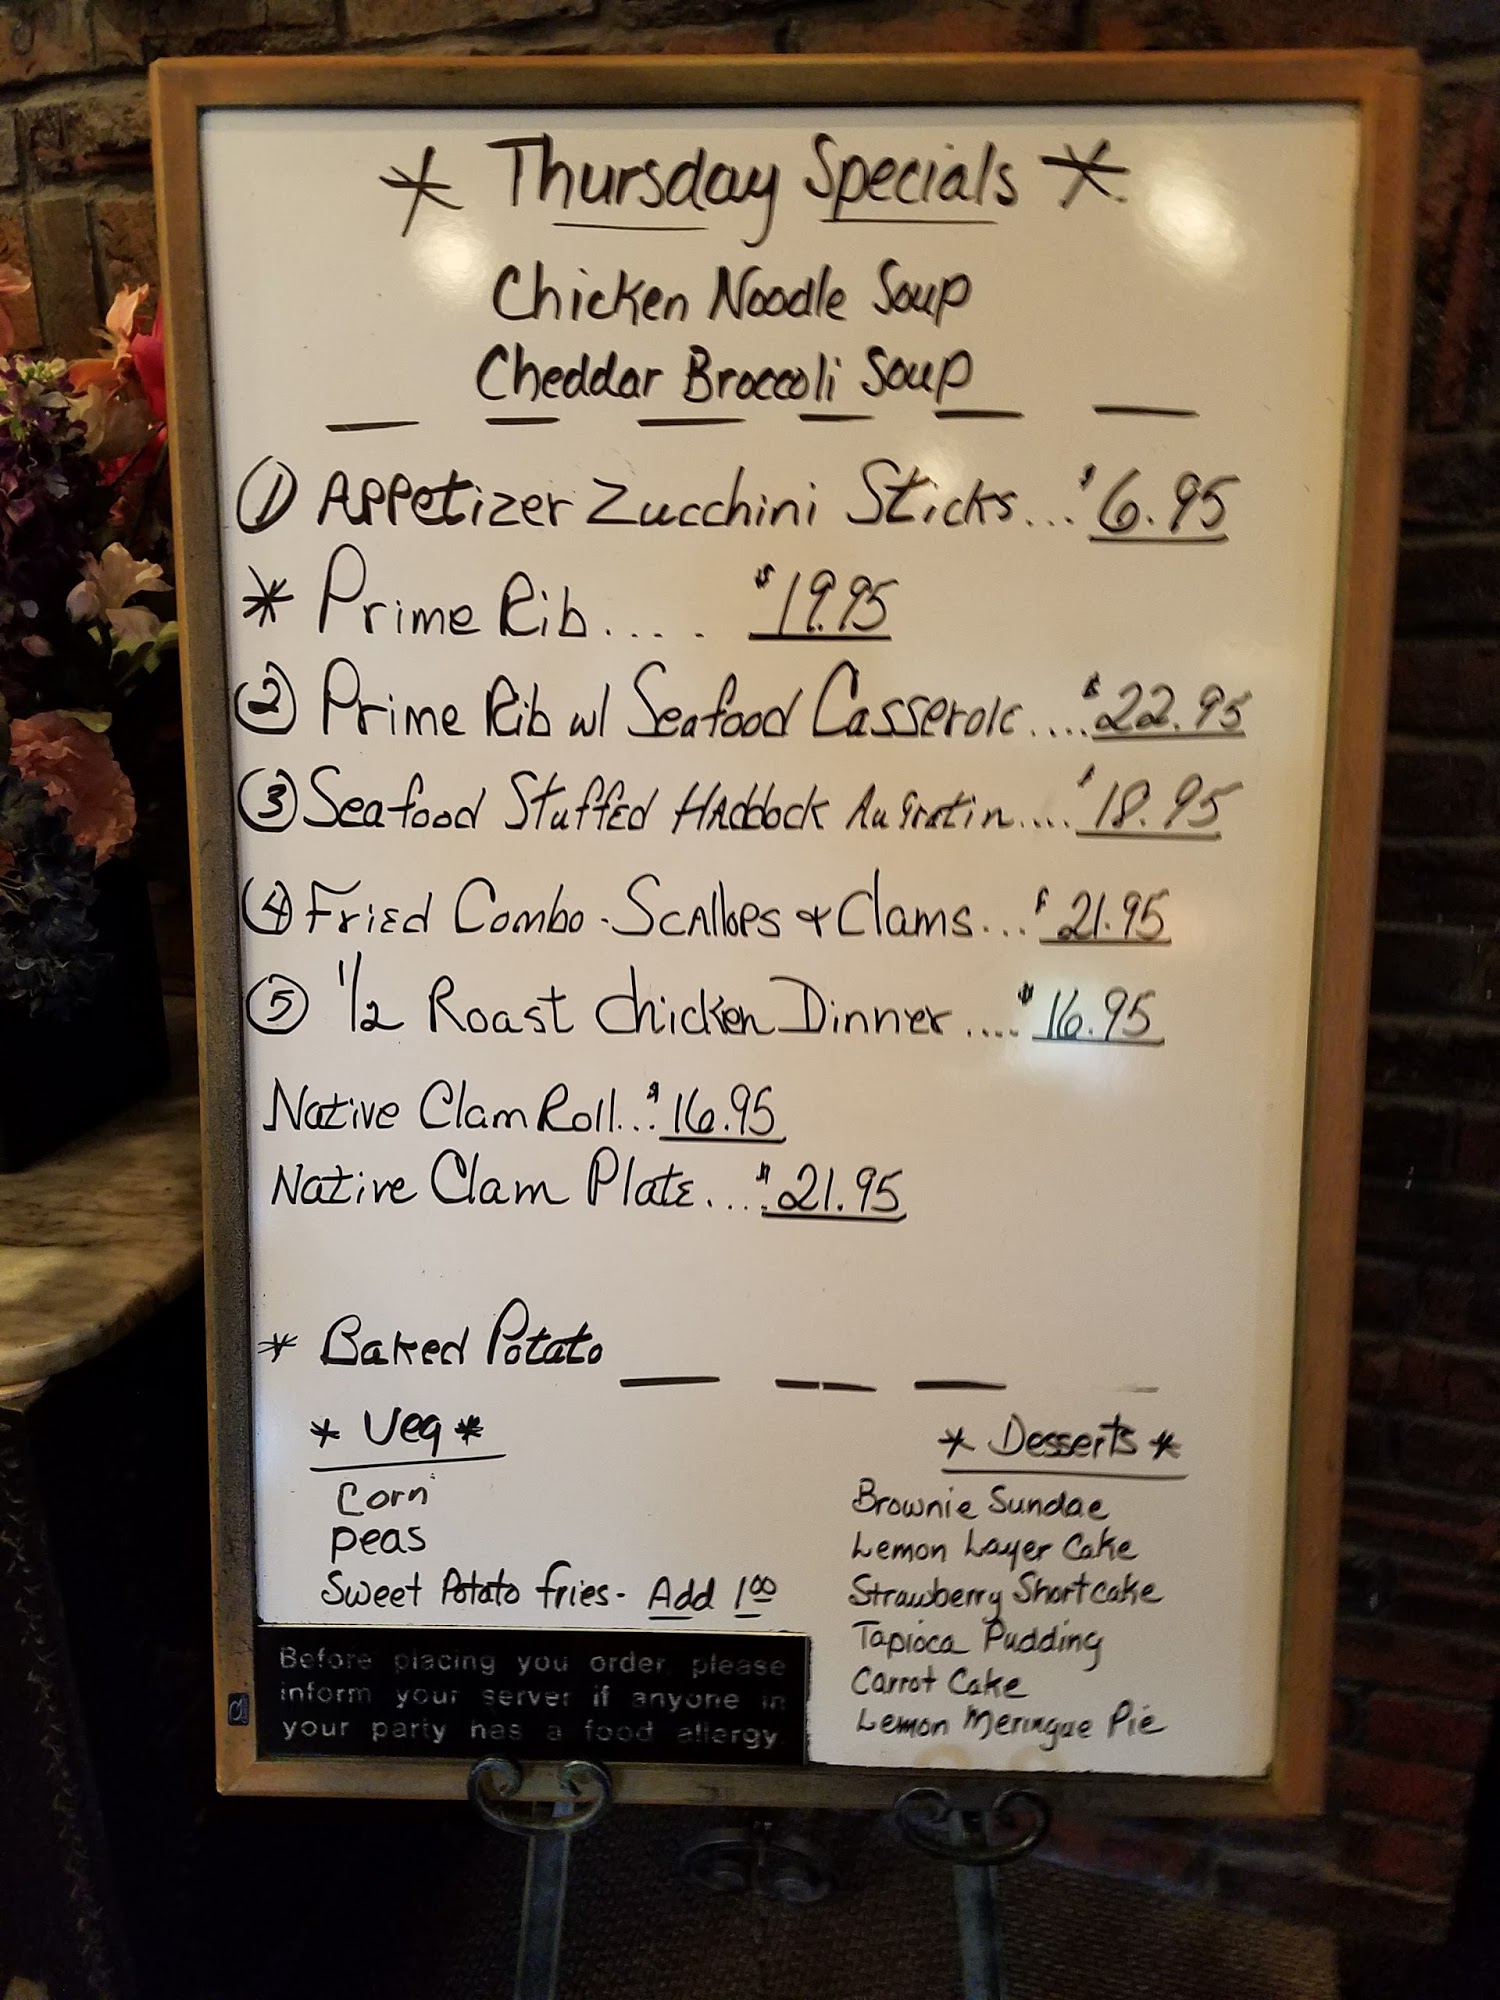 * Thursday Specials *
Chicken Noodle Soup
Cheddar Broccoli Soup
① Appetizer Zucchini Sticks... $6.95
* Prime Rib.... $19.95
② Prime Rib w/ Seafood Casserole.... $22.95
③ Seafood Stuffed Haddock Au Gratin.... $18.95
④ Fried Combo - Scallops & Clams... $21.95
⑤ 1/2 Roast Chicken Dinner.... $16.95
Native Clam Roll... $16.95
Native Clam Plate.... $21.95
* Baked Potato
* Veg *
Corn
Peas
Sweet Potato fries - Add 1.00
* Desserts *
Brownie Sundae
Lemon Layer Cake
Strawberry Shortcake
Tapioca Pudding
Carrot Cake
Lemon Meringue Pie
Before placing you order, please
inform your server if anyone in
your party has a food allergy